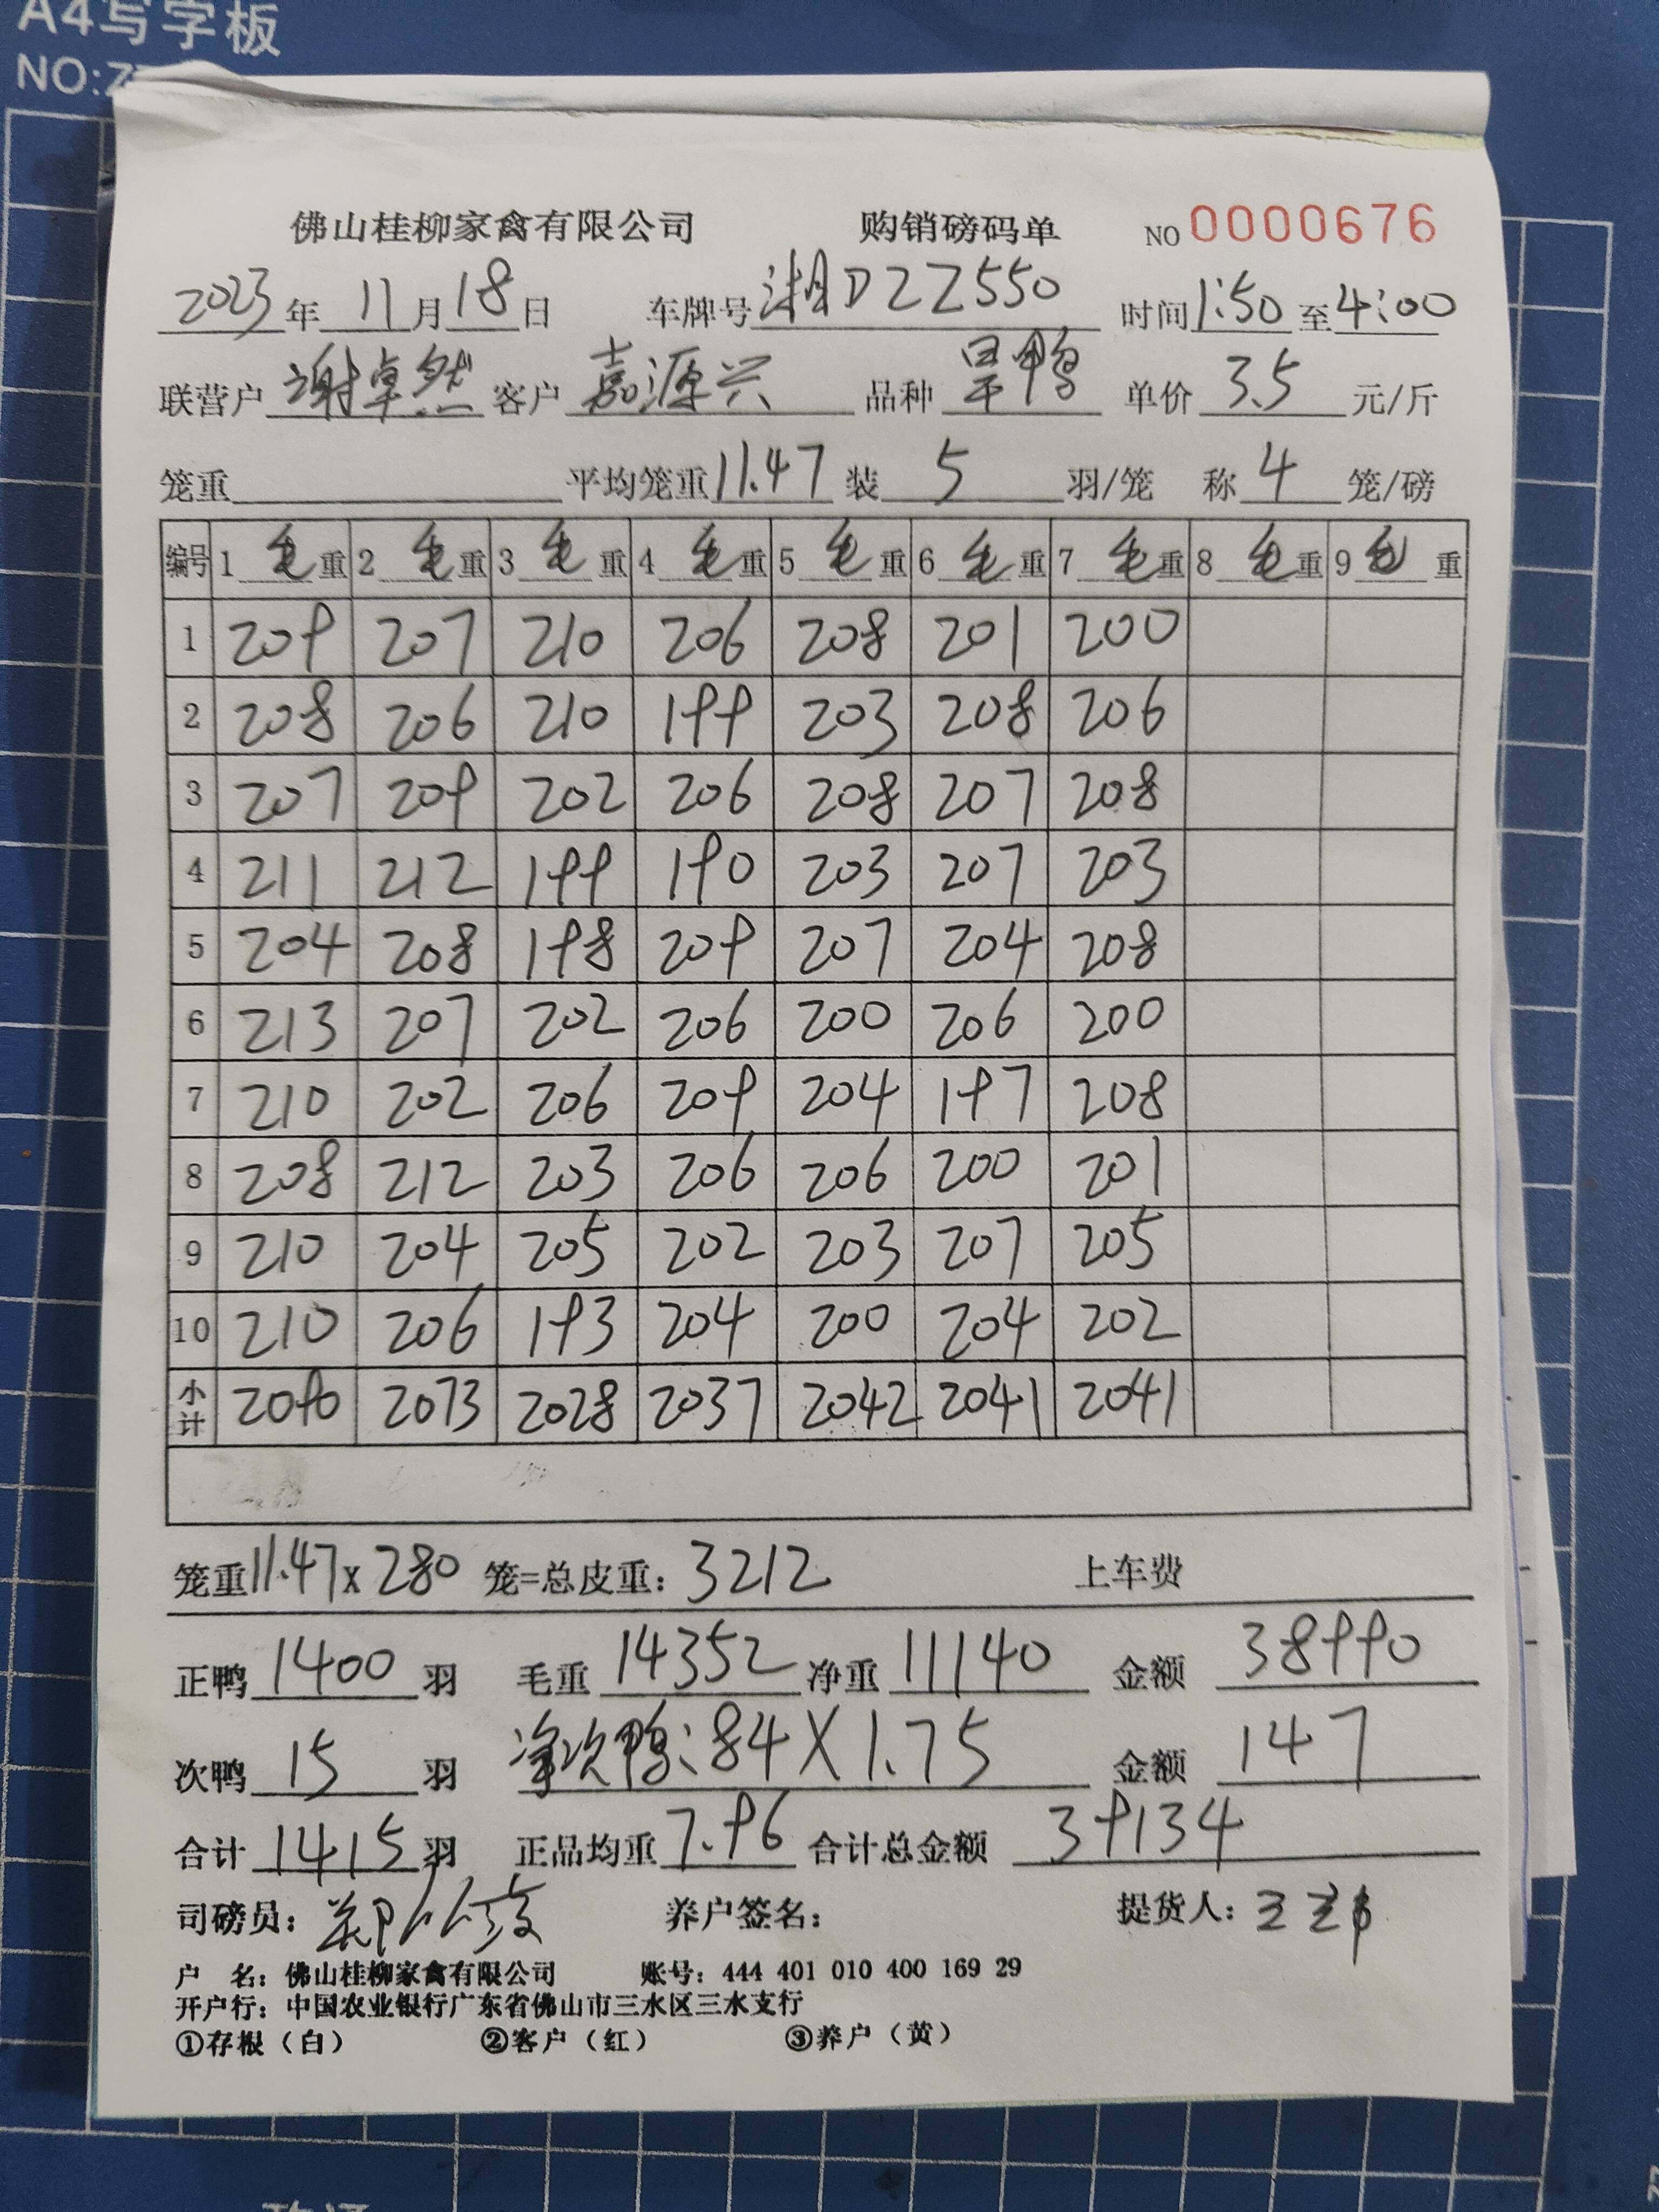 A4写字板
NO:Z
佛山桂柳家禽有限公司 购销磅码单 NO 0000676
2023年 11月18日 车牌号 湘DZZ550 时间1:50至4:00
联营户 谢卓然 客户 嘉源兴 品种 旱鸭 单价 3.5 元/斤
笼重 平均笼重 11.47 装 5 羽/笼 称 4 笼/磅
编号 1 毛重 2 毛重 3 毛重 4 毛重 5 毛重 6 毛重 7 毛重 8 毛重 9 毛重
1 209 207 210 206 208 201 200
2 208 206 210 199 203 208 206
3 207 209 202 206 208 207 208
4 211 212 199 190 203 207 203
5 204 208 198 209 207 204 208
6 213 207 202 206 200 206 200
7 210 202 206 209 204 197 208
8 208 212 203 206 206 200 201
9 210 204 205 202 203 207 205
10 210 206 193 204 200 204 202
小计 2090 2073 2028 2037 2042 2041 2041
笼重11.47x280 笼=总皮重：3212 上车费
正鸭 1400 羽 毛重 14352 净重 11140 金额 38990
次鸭 15 羽 净次鸭:84X1.75 金额 147
合计 1415 羽 正品均重 7.96 合计总金额 39134
司磅员： 养户签名： 提货人：
户 名：佛山桂柳家禽有限公司 账号：444 401 010 400 169 29
开户行：中国农业银行广东省佛山市三水区三水支行
①存根（白） ②客户（红） ③养户（黄）